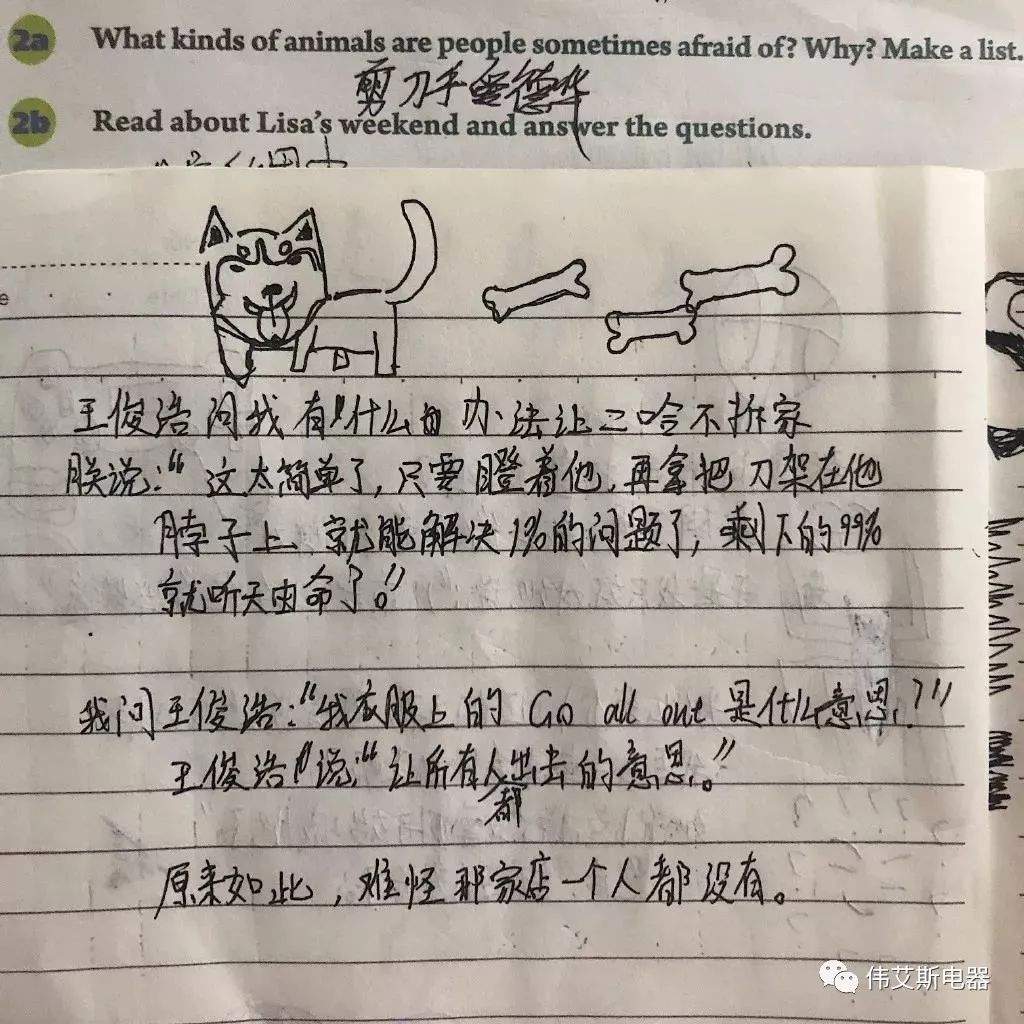 2a What kinds of animals are people sometimes afraid of? Why? Make a list.
剪刀手爱德华
2b Read about Lisa's weekend and answer the questions.
王俊浩问我有什么办法让二哈不拆家
朕说:“这太简单了,只要瞪着他,再拿把刀架在他
脖子上 就能解决1%的问题了,剩下的99%
就听天由命了。”
我问王俊浩:“我衣服上的 Go all out 是什么意思?”
王俊浩说:“让所有人都出去的意思。”
原来如此,难怪那家店一个人都没有。
伟艾斯电器